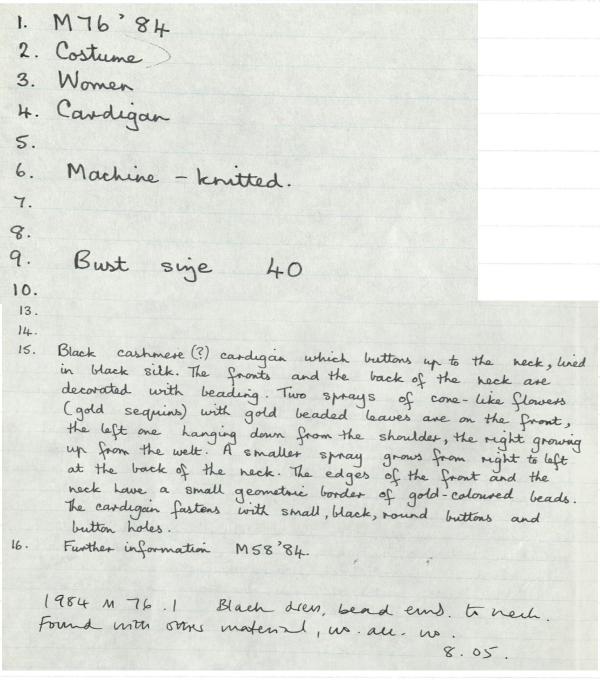 1. M76'84
2. Costume
3. Women
4. Cardigan
5.
6. Machine - knitted.
7.
8.
9. Bust size 40
10.
13.
14.
15. Black cashmere (?) cardigan which buttons up to the neck, lined
in black silk. The fronts and the back of the neck are
decorated with beading. Two sprays of cone-like flowers
(gold sequins) with gold beaded leaves are on the front,
the left one hanging down from the shoulder, the right growing
up from the welt. A smaller spray grows from right to left
at the back of the neck. The edges of the front and the
neck have a small geometric border of gold-coloured beads.
The cardigan fastens with small, black, round buttons and
button holes.
16. Further information M58'84.
1984 M 76.1 Black dress, bead emb. to neck.
Found with other material, no. acc. no.
8.05.